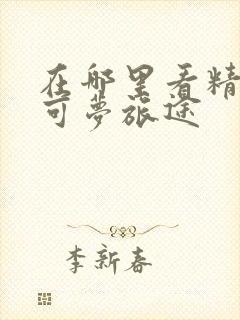 在哪里看精
可梦旅途
李新春